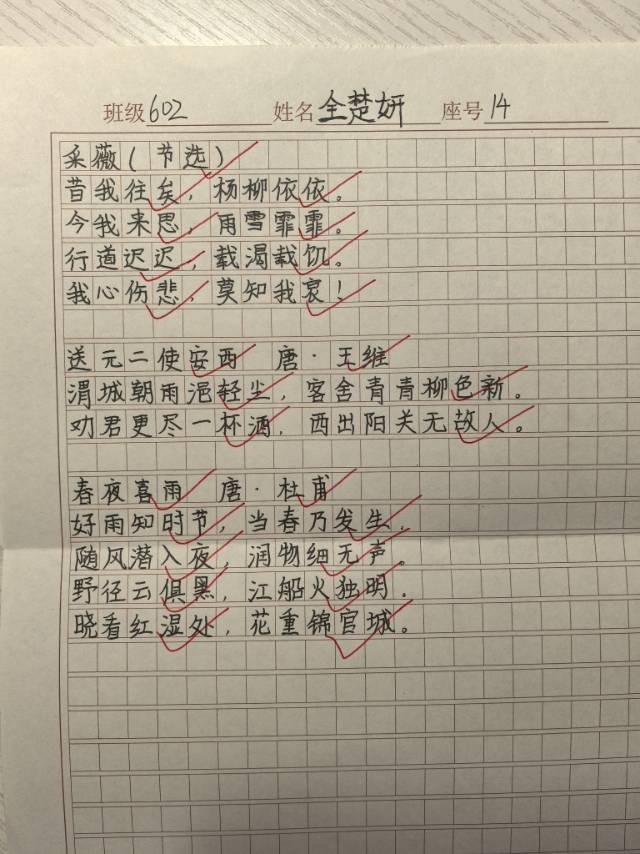 班级 602 姓名 全楚妍 座号 14
采薇(节选)
昔我往矣,杨柳依依。
今我来思,雨雪霏霏。
行道迟迟,载渴载饥。
我心伤悲,莫知我哀!
送元二使安西 唐·王维
渭城朝雨浥轻尘,客舍青青柳色新。
劝君更尽一杯酒,西出阳关无故人。
春夜喜雨 唐·杜甫
好雨知时节,当春乃发生.
随风潜入夜,润物细无声。
野径云俱黑,江船火独明.
晓看红湿处,花重锦官城。